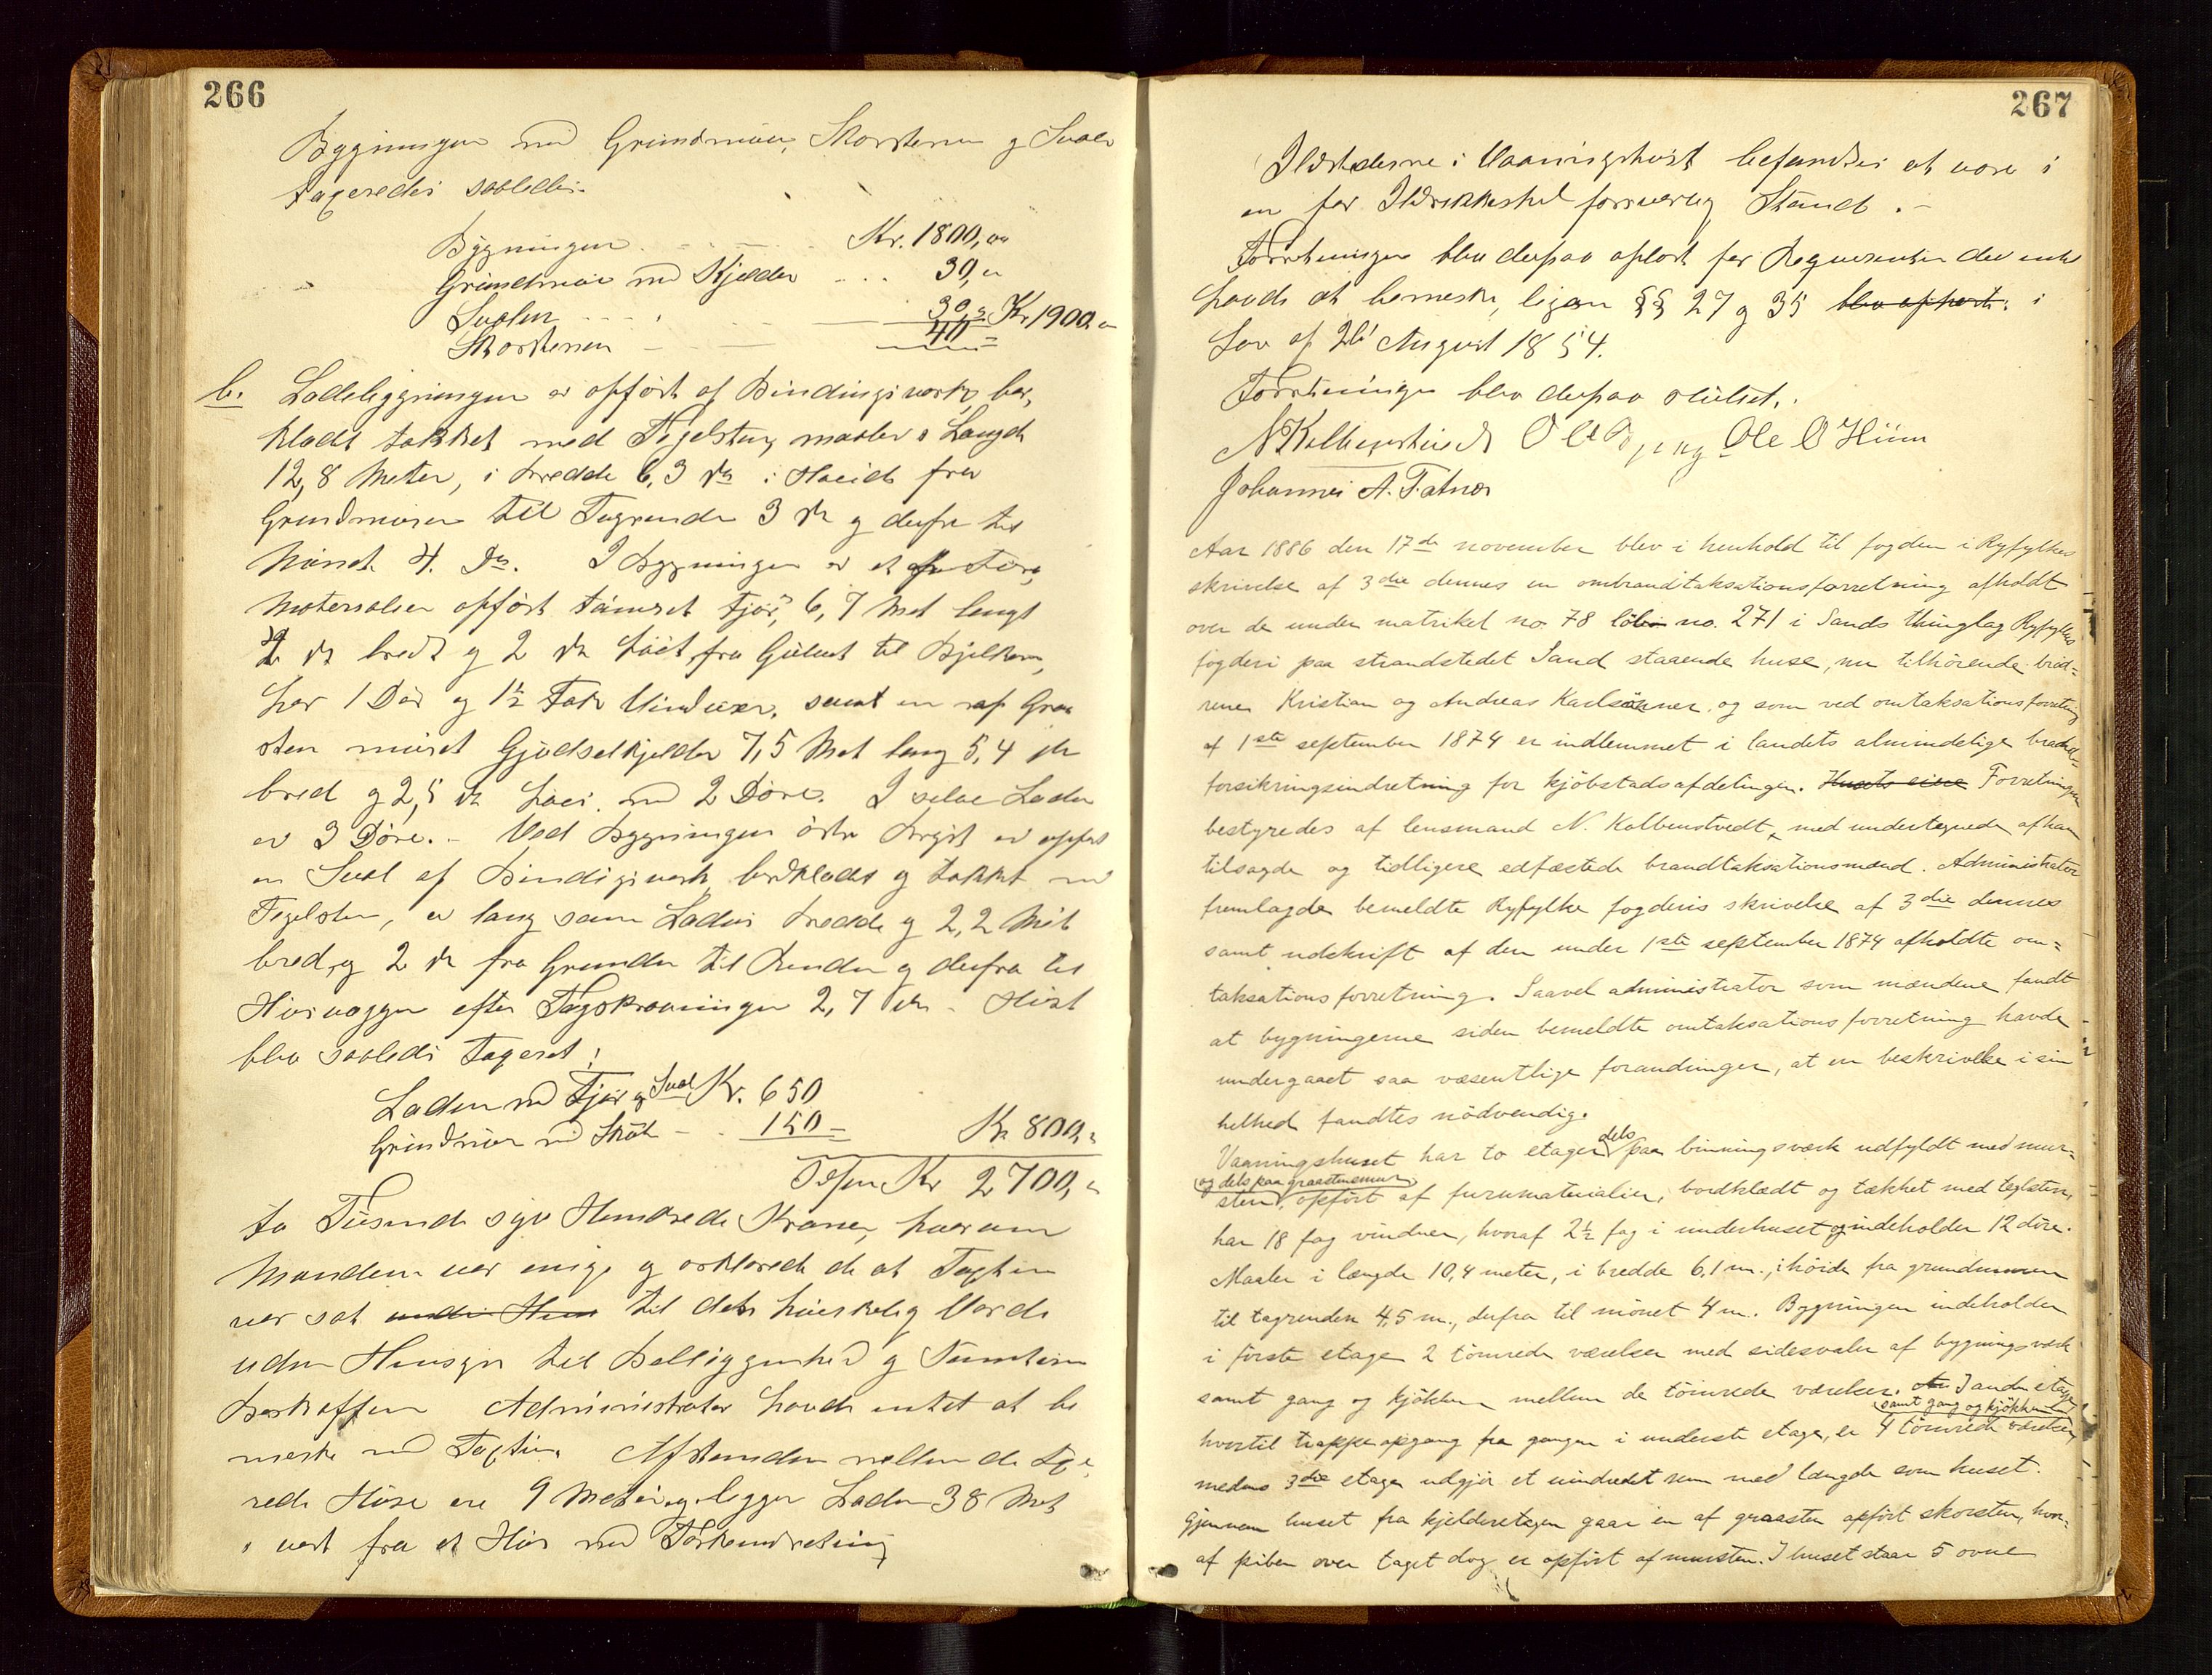 266
Bygningen med Grundmuur, Skorstenen og Sval
taxeredes saaledes:
Bygningen Kr. 1800,00
Grundmuur med Kjelder 30,00
Svalen 30,00 Kr 1900,00
Skorstenen 40 =
b. Ladebygningen er opført af Bindingsværk, bord
klædt takket med Tegelsten, maaler i Længde
12,8 Meter, i Bredde 6,3 do i Høide fra
Grundmuren til Tagrende 3 do og derfra til
Mønet 4. Do. I Bygningen er et af Furu
Materialier opført tømret Fjøs, 6,7 Met langt
do bredt og 2 do høit fra Gulvet til Bjelken,
har 1 Dør og 1½ Fak Vinduer, samt en af Graa
sten muret Gjødselkjelder 7,5 Met lang 5,4 do
bred og 2,5 do høi med 2 Døre. I selve Laden
er 3 Døre. - Ved Bygningen østre er opført
en Sval af Bindigsværk bordklædt og takket med
Tegelsten, er lang som Ladens Bredde og 2,2 Met
bred, og 2 do fra Grunden til Renden og derfra til
Husvæggen efter Tagskraaningen 2,7 do - Huset
blev saaledes taxeret:
Laden med Fjøs og Sval Kr. 650
Grundmuur med 150 = Kr 800,
Tilsammen Kr 2700,
to Tusinde syv Hundrede Kroner, hvorom
Mændene var enige og erklærede de at Taxten
var sat under Hus til dets høieste Værdi
uden Hensyn til Beliggenhed og Tomtens
Beskaffen Administrator havde intet at be
mærke ved Taxten. Afstanden mellem de taxe
rede Huse ere 9 Meter og ligger Laden 38 Met
i vest fra et Hus med Tørkeindretning
267
Ildstederne i Vaaningshuset befandtes at være i
en for Ildsikkerhed forsvarlig Stand. -
Forretningen blev derpaa oplæst for Requirenten der intet
havde at bemærke, ligesom §§ 27 og 35 blev oplæst: i
Lov af 26 August 1854.
Forretningen blev derpaa sluttet.
N Kolbenstvedt Ole Ole O Hiim
Johannes A. Fatnes
Aar 1886 den 17de november blev i henhold til fogden i Ryfylkes
skrivelse af 3die dennes en ombrandtaksationsforretning afholdt
over de under matrikel no. 78 løbe no. 271 i Sands thinglag Ryfylkes
fogderi paa strandstedet Sand staaende huse, nu tilhørende brød-
rene Kristian og Andreas Karlsønner, og som ved omtaksationsforretning
af 1ste september 1874 er indlemmet i landets almindelige brand-
forsikringsindretning for kjøbstadsafdelingen. Husets eiere Forretningen
bestyredes af lensmand N. Kolbenstvedt, med undertegnede, af ham
tilsagde og tidligere edfæstede brandtaksationsmænd. Administrator
fremlagde bemeldte Ryfylke fogderis skrivelse af 3die dennes
samt udskrift af den under 1ste september 1874 afholdte om=
taksationsforretning. Saavel administrator som mændene fandt
at bygningerne siden bemeldte omtaksationsforretning havde
undergaaet saa væsentlige forandringer, at en beskrivelse i sin
helhed fandtes nödvendig.
Vaaningshuset har to etager dels paa binningsværk udfyldt med mur-
og dels paa graastensmur
sten, opført af furumaterialier, bordklædt og tækket med teglsten,
har 18 fag vinduer, hvoraf 2½ fag i underhuset og indeholder 12 döre.
Maaler i længde 10,4 meter, i bredde 6,1 m., i höide fra grundmuren
til tagrenden 4,5 m., derfra til mönet 4 m. Bygningen indeholder
i förste etage 2 tömrede værelser med sidesvaler af bygningsværk
samt gang og kjökken mellem de tömrede værelser. I anden etage,
samt gang og kjökken
hvortil trappeopgang fra gangen i underste etage, er 4 tömrede værelser,
medens 3die etage udgjör et uindredet rum med længde som huset.
Gjennem huset fra kjelderetagen gaar en af graasten opfört skorsten, hvor-
af piben over taget dog er opfört af mursten. I huset staar 5 ovne